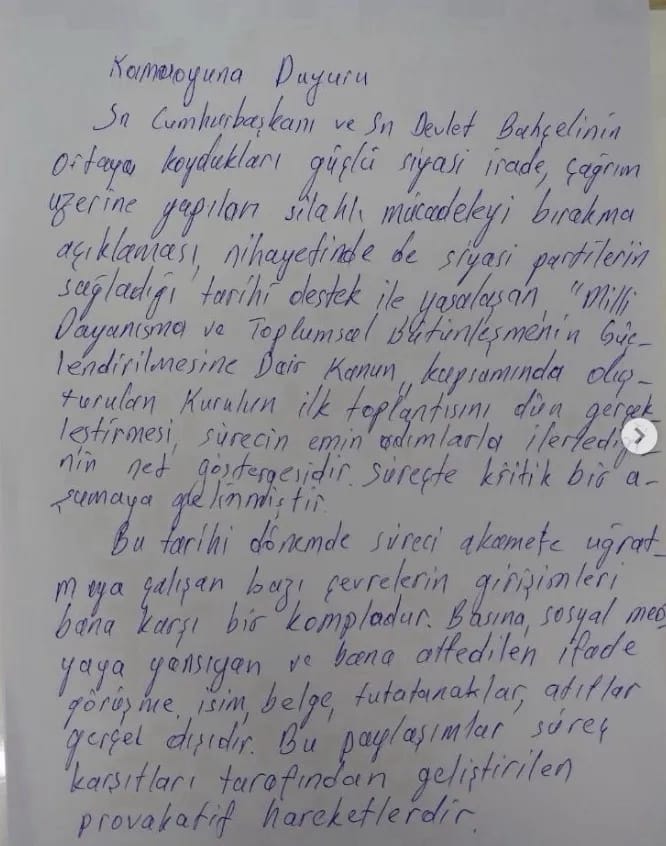 Kamuoyuna Duyuru
Sn Cumhurbaşkanı ve Sn Devlet Bahçelinin
ortaya koydukları güçlü siyasi irade, çağrım
üzerine yapılan silahlı mücadeleyi bırakma
açıklaması, nihayetinde de siyasi partilerin
sağladığı tarihi destek ile yasalaşan, "Milli
Dayanışma ve Toplumsal Bütünleşmenin Güç-
lendirilmesine Dair Kanun" kapsamında oluş-
turulan Kurulun ilk toplantısını dün gerçek
leştirmesi, sürecin emin adımlarla ilerlediği
nin net göstergesidir. Süreçte kritik bir a-
şamaya gelinmiştir.
Bu tarihi dönemde süreci akamete uğrat-
maya çalışan bazı çevrelerin girişimleri
bana karşı bir kompladur. Basına, sosyal med
yaya yansıyan ve bana atfedilen ifade
görüşme, isim, belge, tutatanaklar, atıflar
gerçel dışıdır. Bu paylaşımlar süreç
karşıtları tarafından geliştirilen
provakatif hareketlerdir.